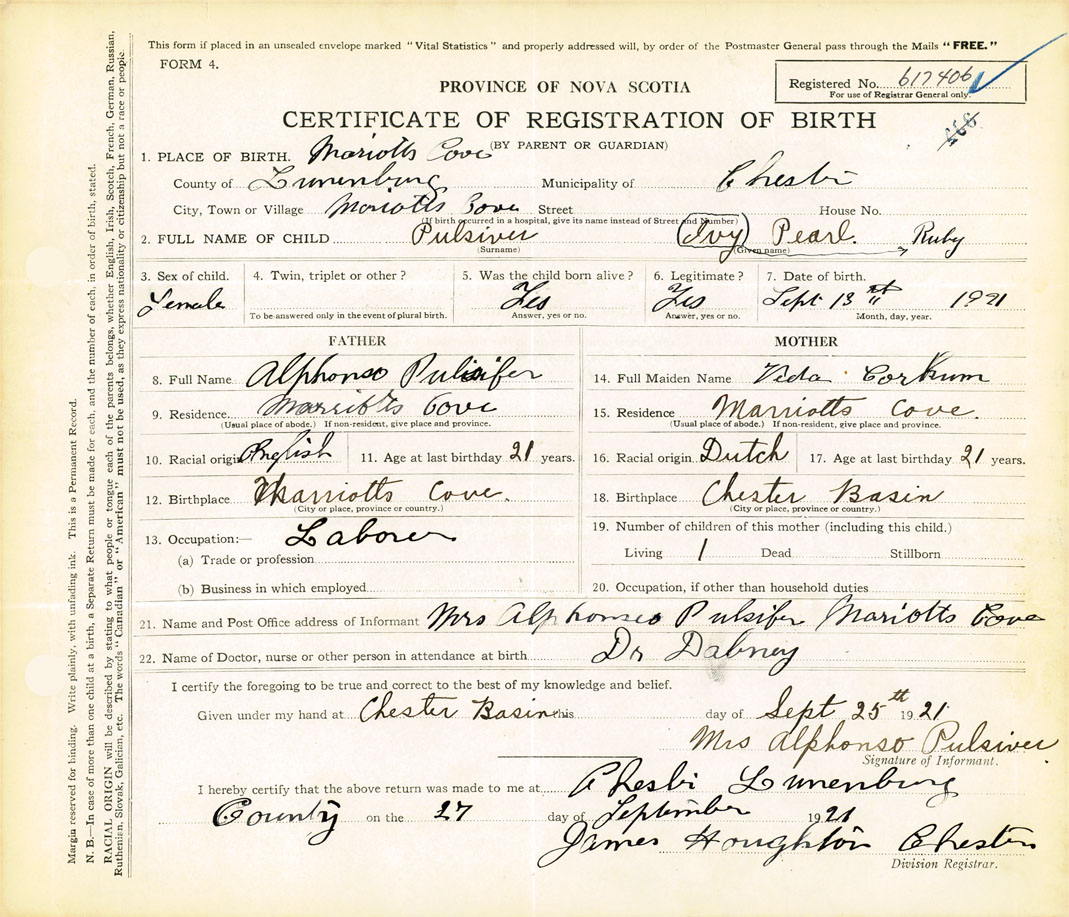 This form if placed in an unsealed envelope marked "Vital Statistics" and properly addressed will, by order of the Postmaster General pass through the Mails "FREE."
FORM 4.
Registered No. 617406
For use of Registrar General only.
PROVINCE OF NOVA SCOTIA
CERTIFICATE OF REGISTRATION OF BIRTH
(BY PARENT OR GUARDIAN)
1. PLACE OF BIRTH. Mariotts Cove
County of Lunenburg Municipality of Chester
City, Town or Village Mariotts Cove Street House No.
(If birth occurred in a hospital, give its name instead of Street and Number)
2. FULL NAME OF CHILD Pulsiver (Ivy) Pearl. Ruby
(Surname) (Given name)
3. Sex of child. 4. Twin, triplet or other? 5. Was the child born alive? 6. Legitimate? 7. Date of birth.
Female Yes Yes Sept 13 1921
To be answered only in the event of plural birth. Answer, yes or no. Answer, yes or no. Month, day, year.
FATHER
8. Full Name Alphonso Pulsifer
9. Residence. Marriotts Cove
(Usual place of abode.) If non-resident, give place and province.
10. Racial origin English 11. Age at last birthday 21 years.
12. Birthplace Marriotts Cove.
(City or place, province or country.)
13. Occupation:— Laborer
(a) Trade or profession
(b) Business in which employed
MOTHER
14. Full Maiden Name Veda Corkum
15. Residence Marriotts Cove.
(Usual place of abode.) If non-resident, give place and province.
16. Racial origin Dutch 17. Age at last birthday 21 years.
18. Birthplace Chester Basin
(City or place, province or country.)
19. Number of children of this mother (including this child.)
Living 1 Dead Stillborn
20. Occupation, if other than household duties
21. Name and Post Office address of Informant Mrs Alphonso Pulsifer Mariotts Cove
22. Name of Doctor, nurse or other person in attendance at birth Dr Dabney
I certify the foregoing to be true and correct to the best of my knowledge and belief.
Given under my hand at Chester Basin this day of Sept 25th 1921
Mrs Alphonso Pulsiver
Signature of Informant.
I hereby certify that the above return was made to me at Chester Lunenburg
County on the 27 day of September 1921
James Houghton Chester
Division Registrar.
Margin reserved for binding. Write plainly, with unfading ink. This is a Permanent Record.
N. B.—In case of more than one child at a birth, a Separate Return must be made for each, and the number of each, in order of birth, stated.
RACIAL ORIGIN will be described by stating to what people or tongue each of the parents belongs, whether English, Irish, Scotch, French, German, Russian,
Ruthenian, Slovak, Galician, etc. The words "Canadian" or "American" must not be used, as they express nationality or citizenship but not a race or people.